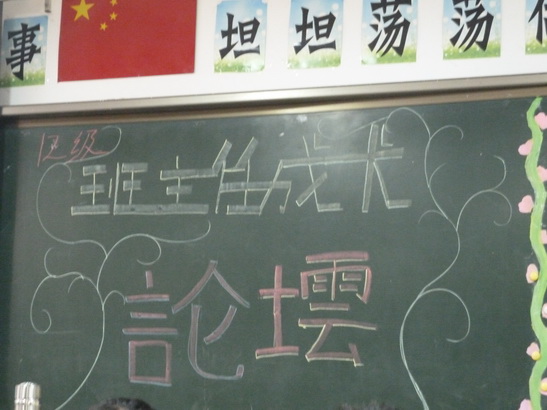 事 坦坦荡荡
区级
班主任成长
論壇